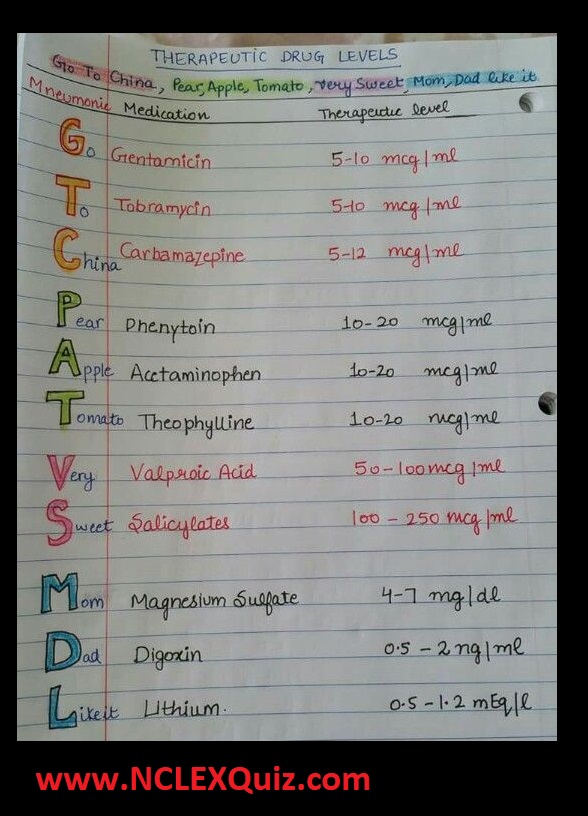 THERAPEUTIC DRUG LEVELS
Go To China, Pear, Apple, Tomato, Very Sweet, Mom, Dad like it
Mneumonic Medication Therapeutic level
Go Gentamicin 5-10 mcg/ml
To Tobramycin 5-10 mcg/ml
China Carbamazepine 5-12 mcg/ml
Pear Phenytoin 10-20 mcg/ml
Apple Acetaminophen 10-20 mcg/ml
Tomato Theophylline 10-20 mcg/ml
Very Valproic Acid 50-100 mcg/ml
Sweet Salicylates 100 - 250 mcg/ml
Mom Magnesium Sulfate 4-7 mg/dl
Dad Digoxin 0.5 - 2 ng/ml
Like it Lithium. 0.5 - 1.2 mEq/l
www.NCLEXQuiz.com